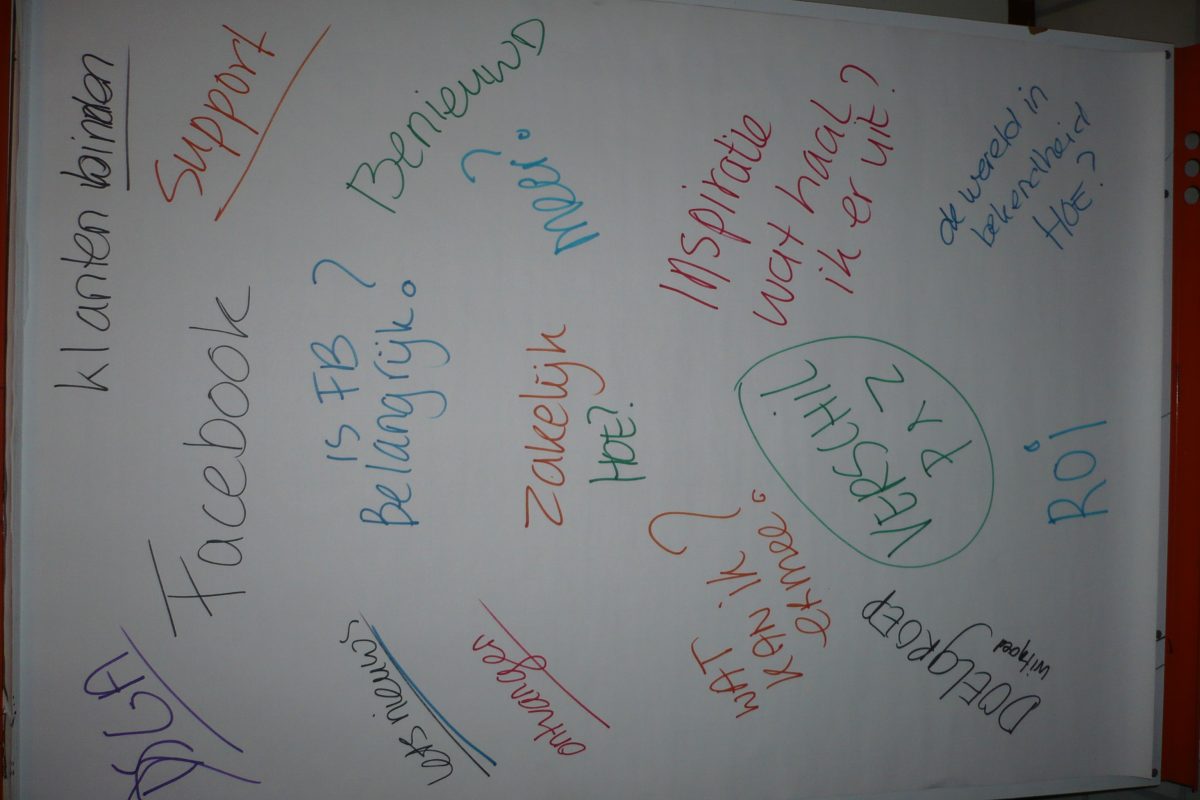 klanten binden
Support
Facebook
Benieuwd
is FB
Belangrijk?
iets nieuws
Meer?
Zakelijk
HOE?
ontvangen
Inspiratie
wat haal
ik er uit?
WAT
KAN ik
ermee?
VERSCHIL
P & Z
de wereld in
bekendheid
HOE?
ROI
DOELGROEP